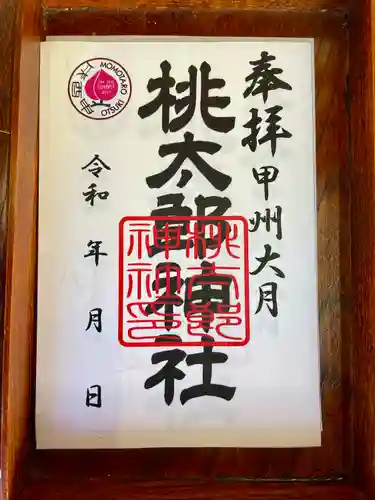 奉拝 甲州大月
桃太郎神社
桃太郎
神社印
令和 年 月 日
MOMOTARO